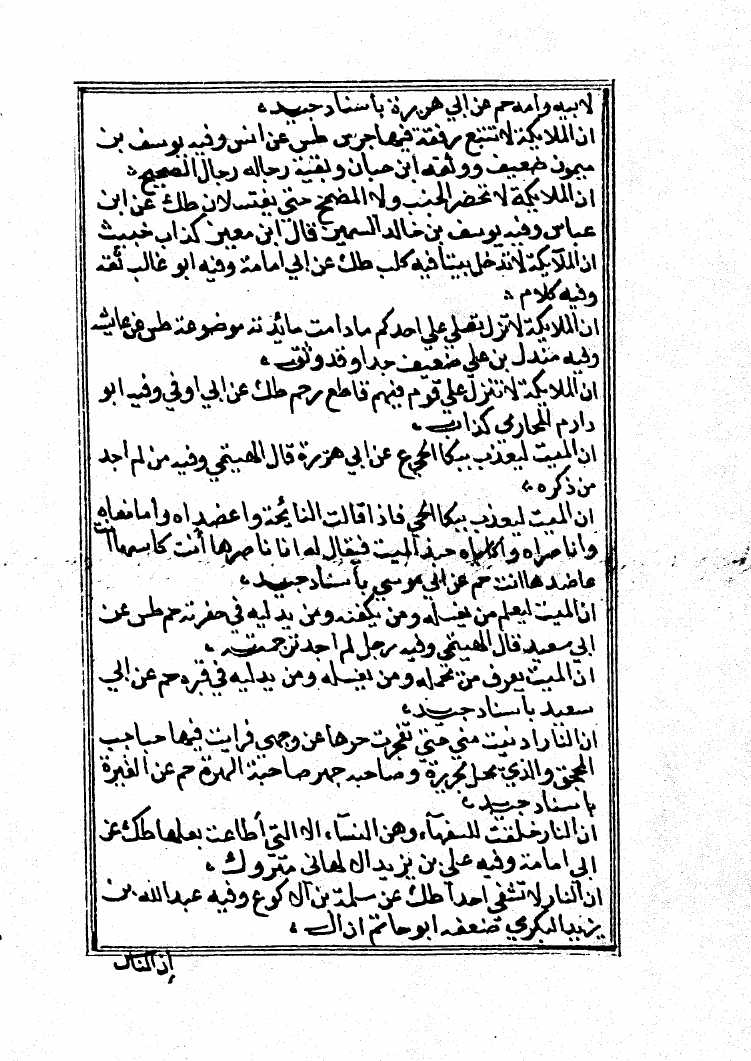 لابيه وامه حم عن ابي هريرة بأسناد جيد ،
ان الملايكة لا تتبع رفقة فيها جرس طس عن انس وفيه يوسف بن
ميمون ضعيف ووثقه ابن حبان وبقية رجاله رجال الصحيح ،
ان الملايكة لا تحضر الجنب ولا المضمخ حتى يغتسلان طك عن ابن
عباس وفيه يوسف بن خالد السمين قال ابن معين كذاب خبيث
ان الملآيكة لا تدخل بيتا فيه كلب طك عن ابي امامة وفيه ابو غالب ثقة
وفيه كلام ،
ان الملايكة لا تزل تصلي علي احدكم مادامت مائدته موضوعة طس عن عايشه
وفيه مندل بن علي ضعيف جدا وقد وثق ،
ان الملايكة لا تنزل علي قوم فيهم قاطع رحم طك عن ابي اوفي وفيه ابو
دادم المحاربي كذاب ،
ان الميت ليعذب ببكا الحي ع عن ابي هريرة قال الهيتمي وفيه من لم اجد
من ذكره ،
ان الميت ليعذب ببكا الحي فاذا قالت النايحة واعضداه وامانعاه
وانا صراه واكاسياه حبذ الميت فيقال له انا ناصرها أنت كاسيها أنت
عاضدها انت حم عن ابي موسي بأسناد جيد ،
ان الميت ليعلم من يغسله ومن يكفنه ومن يدليه في حفرته حم طس عن
ابي سعيد قال الهيتمي وفيه رجل لم اجد ترجمته ،
ان الميت يعرف من يحمله ومن يغسله ومن يدليه في قبره حم عن ابي
سعيد بأسناد جيد ،
ان النار ادنيت مني حتي نفجرت حرها عن وجهي فرايت فيها صاحب
المحجن والذي بحل بحريرة وصاحبه حمير صاحبة الهرة حم عن المغيرة
باسناد جيد ،
ان النار خلقت للسفهآء وهن النسآء الا التي أطاعت بعلها طك عن
ابي امامة وفيه علي بن يزيد الالهاني متروك ،
ان النار لا تشفي احدا طك عن سلمة بن الاكوع وفيه عبد الله بن
يزيد البكري ضعفه ابو حاتم ان ال ،
إن المنال